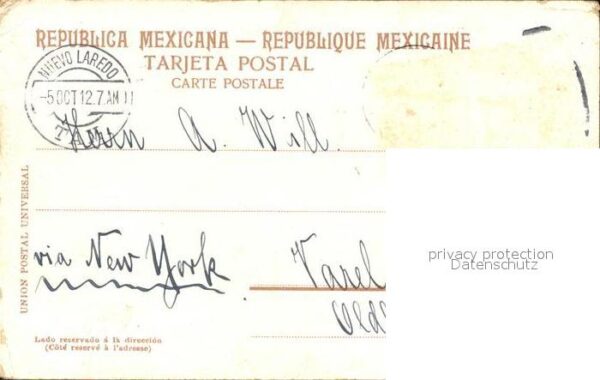 REPUBLICA MEXICANA — REPUBLIQUE MEXICAINE
TARJETA POSTAL
CARTE POSTALE
NUEVO LAREDO
-5 OCT 12.7 AM
TAM
Herrn A. Will.
UNION POSTAL UNIVERSAL
via New York
Varel
privacy protection
Datenschutz
Lado reservado á la dirección
(Côté reservé à l'adresse)